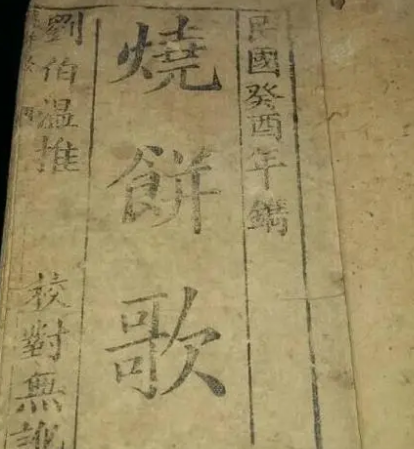 民國癸酉年鐫
燒餅歌
劉伯温推
校對無訛